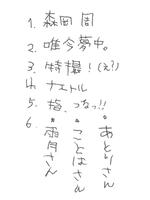 1. 森岡 周
2. 唯今夢中。
3. 特撮！(え?)
4. ナエトル
5. 指、つなっ!!
6.
・あとりさん
・ことはさん
・雨月さん